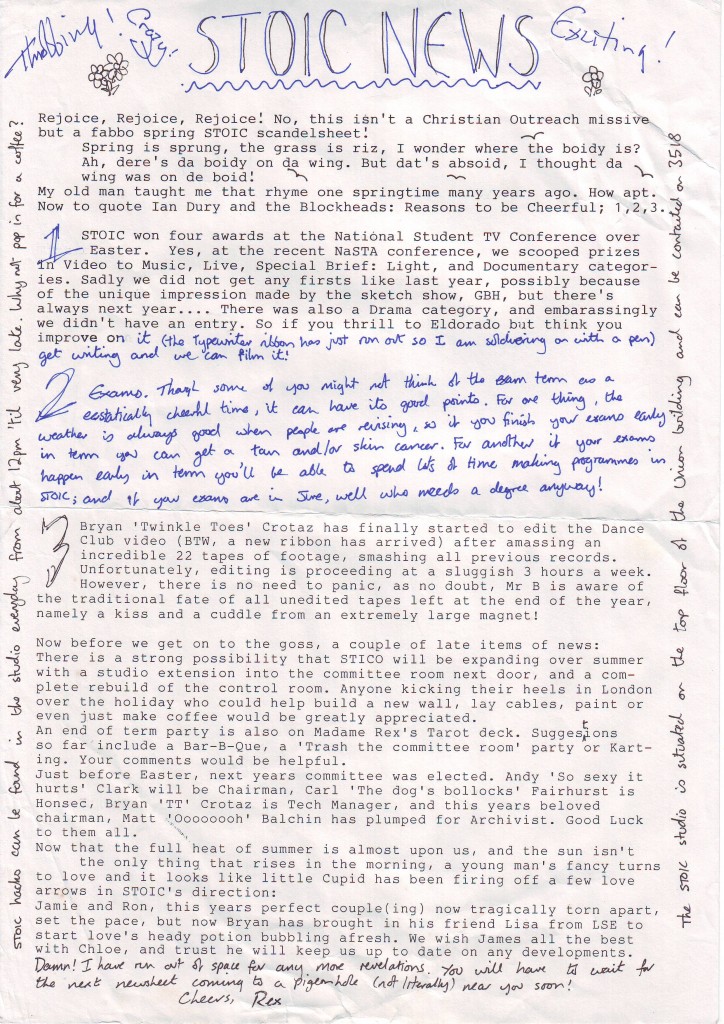 Throbbing! Crazy!
STOIC NEWS
Exciting!
Rejoice, Rejoice, Rejoice! No, this isn't a Christian Outreach missive
but a fabbo spring STOIC scandelsheet!
Spring is sprung, the grass is riz, I wonder where the boidy is?
Ah, dere's da boidy on da wing. But dat's absoid, I thought da
wing was on de boid!
My old man taught me that rhyme one springtime many years ago. How apt.
Now to quote Ian Dury and the Blockheads: Reasons to be Cheerful; 1,2,3.
1 STOIC won four awards at the National Student TV Conference over
Easter. Yes, at the recent NaSTA conference, we scooped prizes
in Video to Music, Live, Special Brief: Light, and Documentary categor-
ies. Sadly we did not get any firsts like last year, possibly because
of the unique impression made by the sketch show, GBH, but there's
always next year.... There was also a Drama category, and embarassingly
we didn't have an entry. So if you thrill to Eldorado but think you
improve on it (the typewriter ribbon has just run out so I am soldiering on with a pen)
get writing and we can film it!
2 Exams. Though some of you might not think of the exam term as a
ecstatically cheerful time, it can have its good points. For one thing, the
weather is always good when people are revising, so if you finish your exams early
in term you can get a tan and/or skin cancer. For another if your exams
happen early in term you'll be able to spend lots of time making programmes in
STOIC; and if your exams are in June, well who needs a degree anyway!
3 Bryan 'Twinkle Toes' Crotaz has finally started to edit the Dance
Club video (BTW, a new ribbon has arrived) after amassing an
incredible 22 tapes of footage, smashing all previous records.
Unfortunately, editing is proceeding at a sluggish 3 hours a week.
However, there is no need to panic, as no doubt, Mr B is aware of
the traditional fate of all unedited tapes left at the end of the year,
namely a kiss and a cuddle from an extremely large magnet!
Now before we get on to the goss, a couple of late items of news:
There is a strong possibility that STICO will be expanding over summer
with a studio extension into the committee room next door, and a com-
plete rebuild of the control room. Anyone kicking their heels in London
over the holiday who could help build a new wall, lay cables, paint or
even just make coffee would be greatly appreciated.
An end of term party is also on Madame Rex's Tarot deck. Suggestions
so far include a Bar-B-Que, a 'Trash the committee room' party or Kart-
ing. Your comments would be helpful.
Just before Easter, next years committee was elected. Andy 'So sexy it
hurts' Clark will be Chairman, Carl 'The dog's bollocks' Fairhurst is
Honsec, Bryan 'TT' Crotaz is Tech Manager, and this years beloved
chairman, Matt 'Oooooooh' Balchin has plumped for Archivist. Good Luck
to them all.
Now that the full heat of summer is almost upon us, and the sun isn't
the only thing that rises in the morning, a young man's fancy turns
to love and it looks like little Cupid has been firing off a few love
arrows in STOIC's direction:
Jamie and Ron, this years perfect couple(ing) now tragically torn apart,
set the pace, but now Bryan has brought in his friend Lisa from LSE to
start love's heady potion bubbling afresh. We wish James all the best
with Chloe, and trust he will keep us up to date on any developments.
Damn! I have run out of space for any more revelations. You will have to wait for
the next newsheet coming to a pigeonhole (not literally) near you soon!
Cheers, Rex
STOIC hacks can be found in the studio everyday from about 12pm 'til very late. Why not pop in for a coffee?
The STOIC studio is situated on the top floor of the Union building and can be contacted on 3518